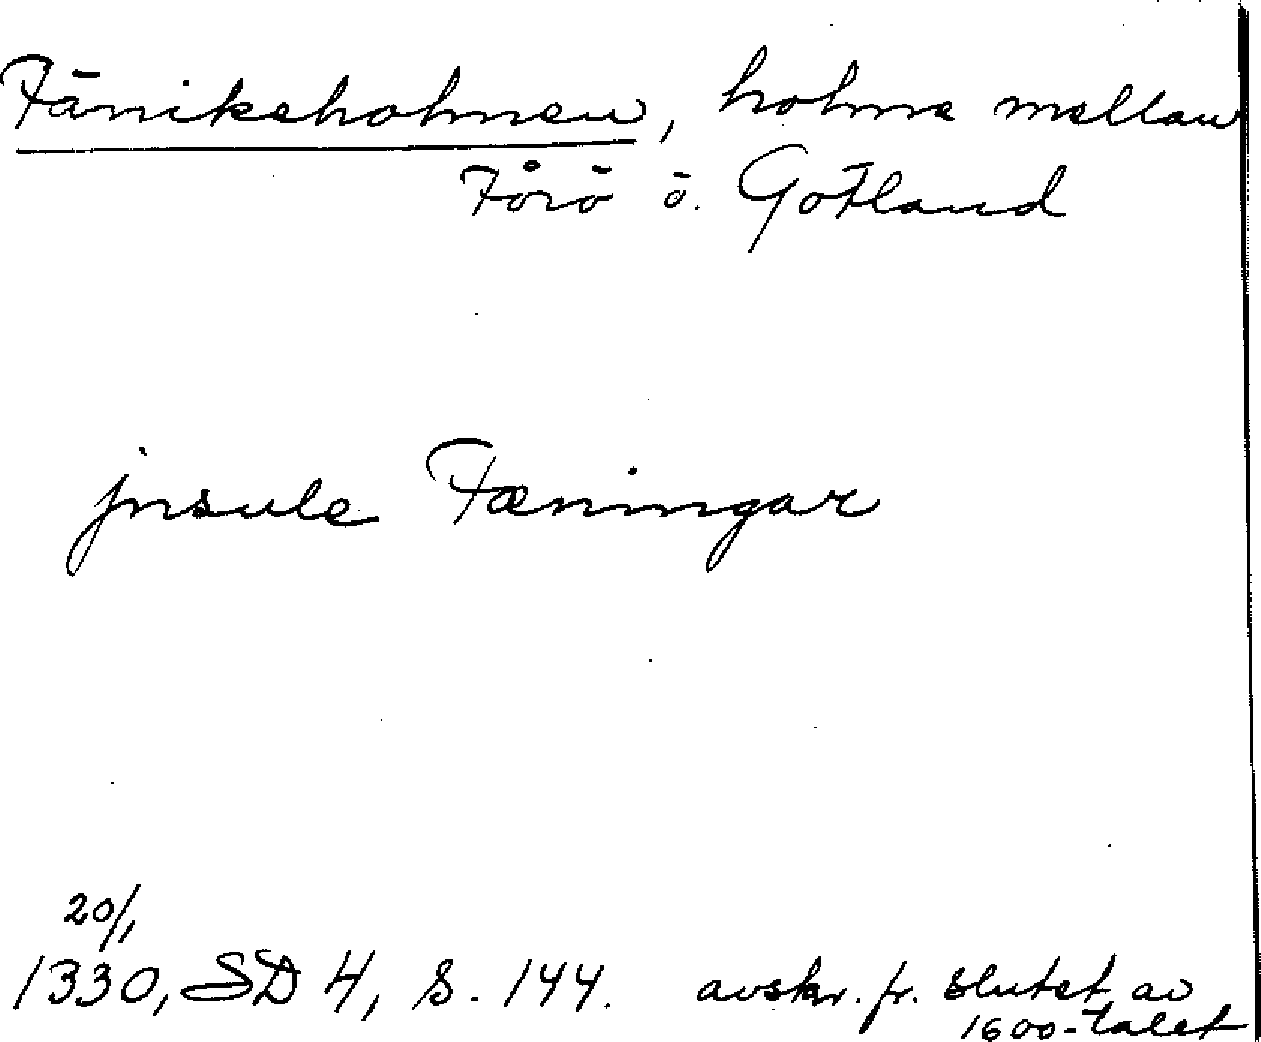 Fänikeholmen, holme mellan
Fårö o. Gotland
jnsule Fæningar
20/1
1330, SD 4, s. 144. avskr. fr. slutet av
1600-talet